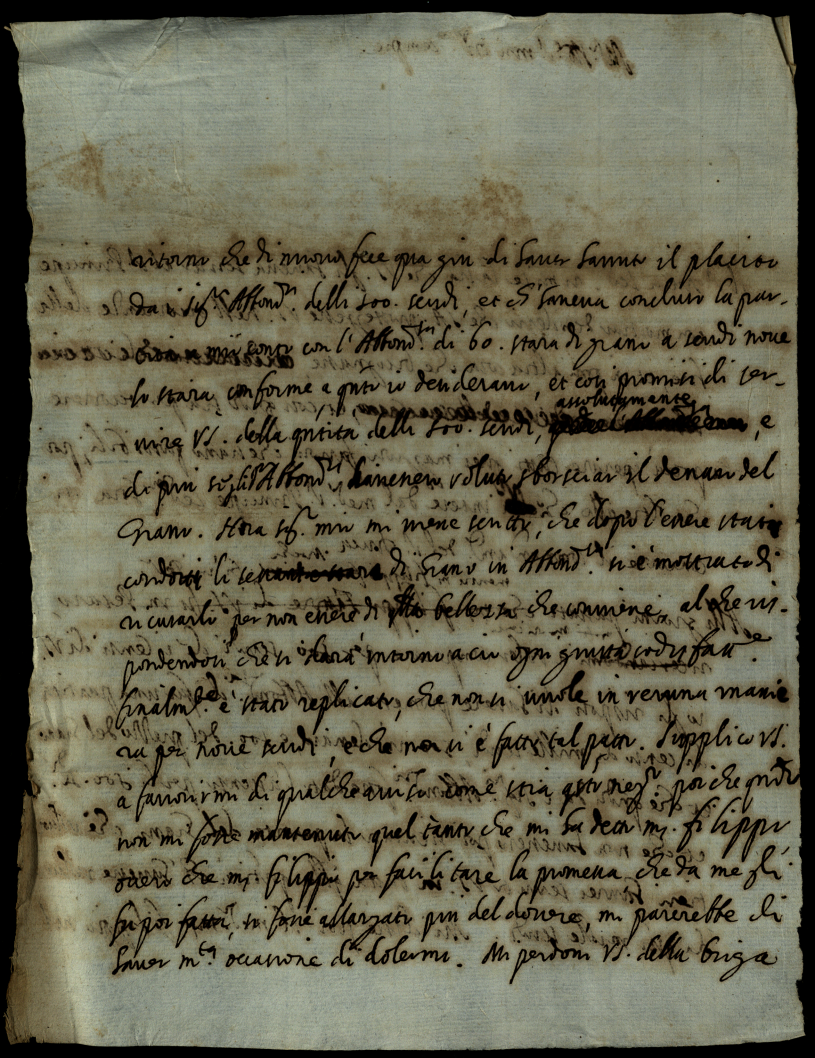 ritorno che di nuovo fece qua giu di haver havuto il placito
da i sig.ri Abbond.ti delli 300. scudi, et ch'haveva concluso la par-
con l'Abbond.tia di 60. stara di grano a scudi nove
lo staro, conforme a q.nto io desideravo, et così promisi di ser-
assolutamante
vire VS. della q.ntità delli 300. scudi, , e
di più sig.li Abbond.ti havenen voluto sborsciar il denaro del
Grano. Hora sig.r mio mi viene scritto, che dopo l'essere stati
condotti li sessante stara di Grano in Abbond.tia si è mostrato di
ricusarli per non essere di bellezza che conviene, al che ris-
pondendosi che si intorno a ciò ogni giusta sodisfatt.ne
finalm.te è stato replicato, che non si vuole in veruna manie
ra per nove scudi, e che non si è fatto tal patto. Supplico VS.
a favorirmi di qualche aviso come stia q.sto neg.o poiche q.ndo
non mi fosse mantenuto quel tanto che mi ha detto m. filippo,
overo che m. filippo per facilitare la promessa che da me gli
fu poi fatta, si fosse allargato più del dovere, mi parerebbe di
haver m.ta occasione di dolermi. Mi perdoni VS. della briga